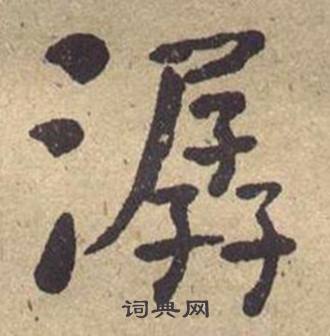 潺
词典网